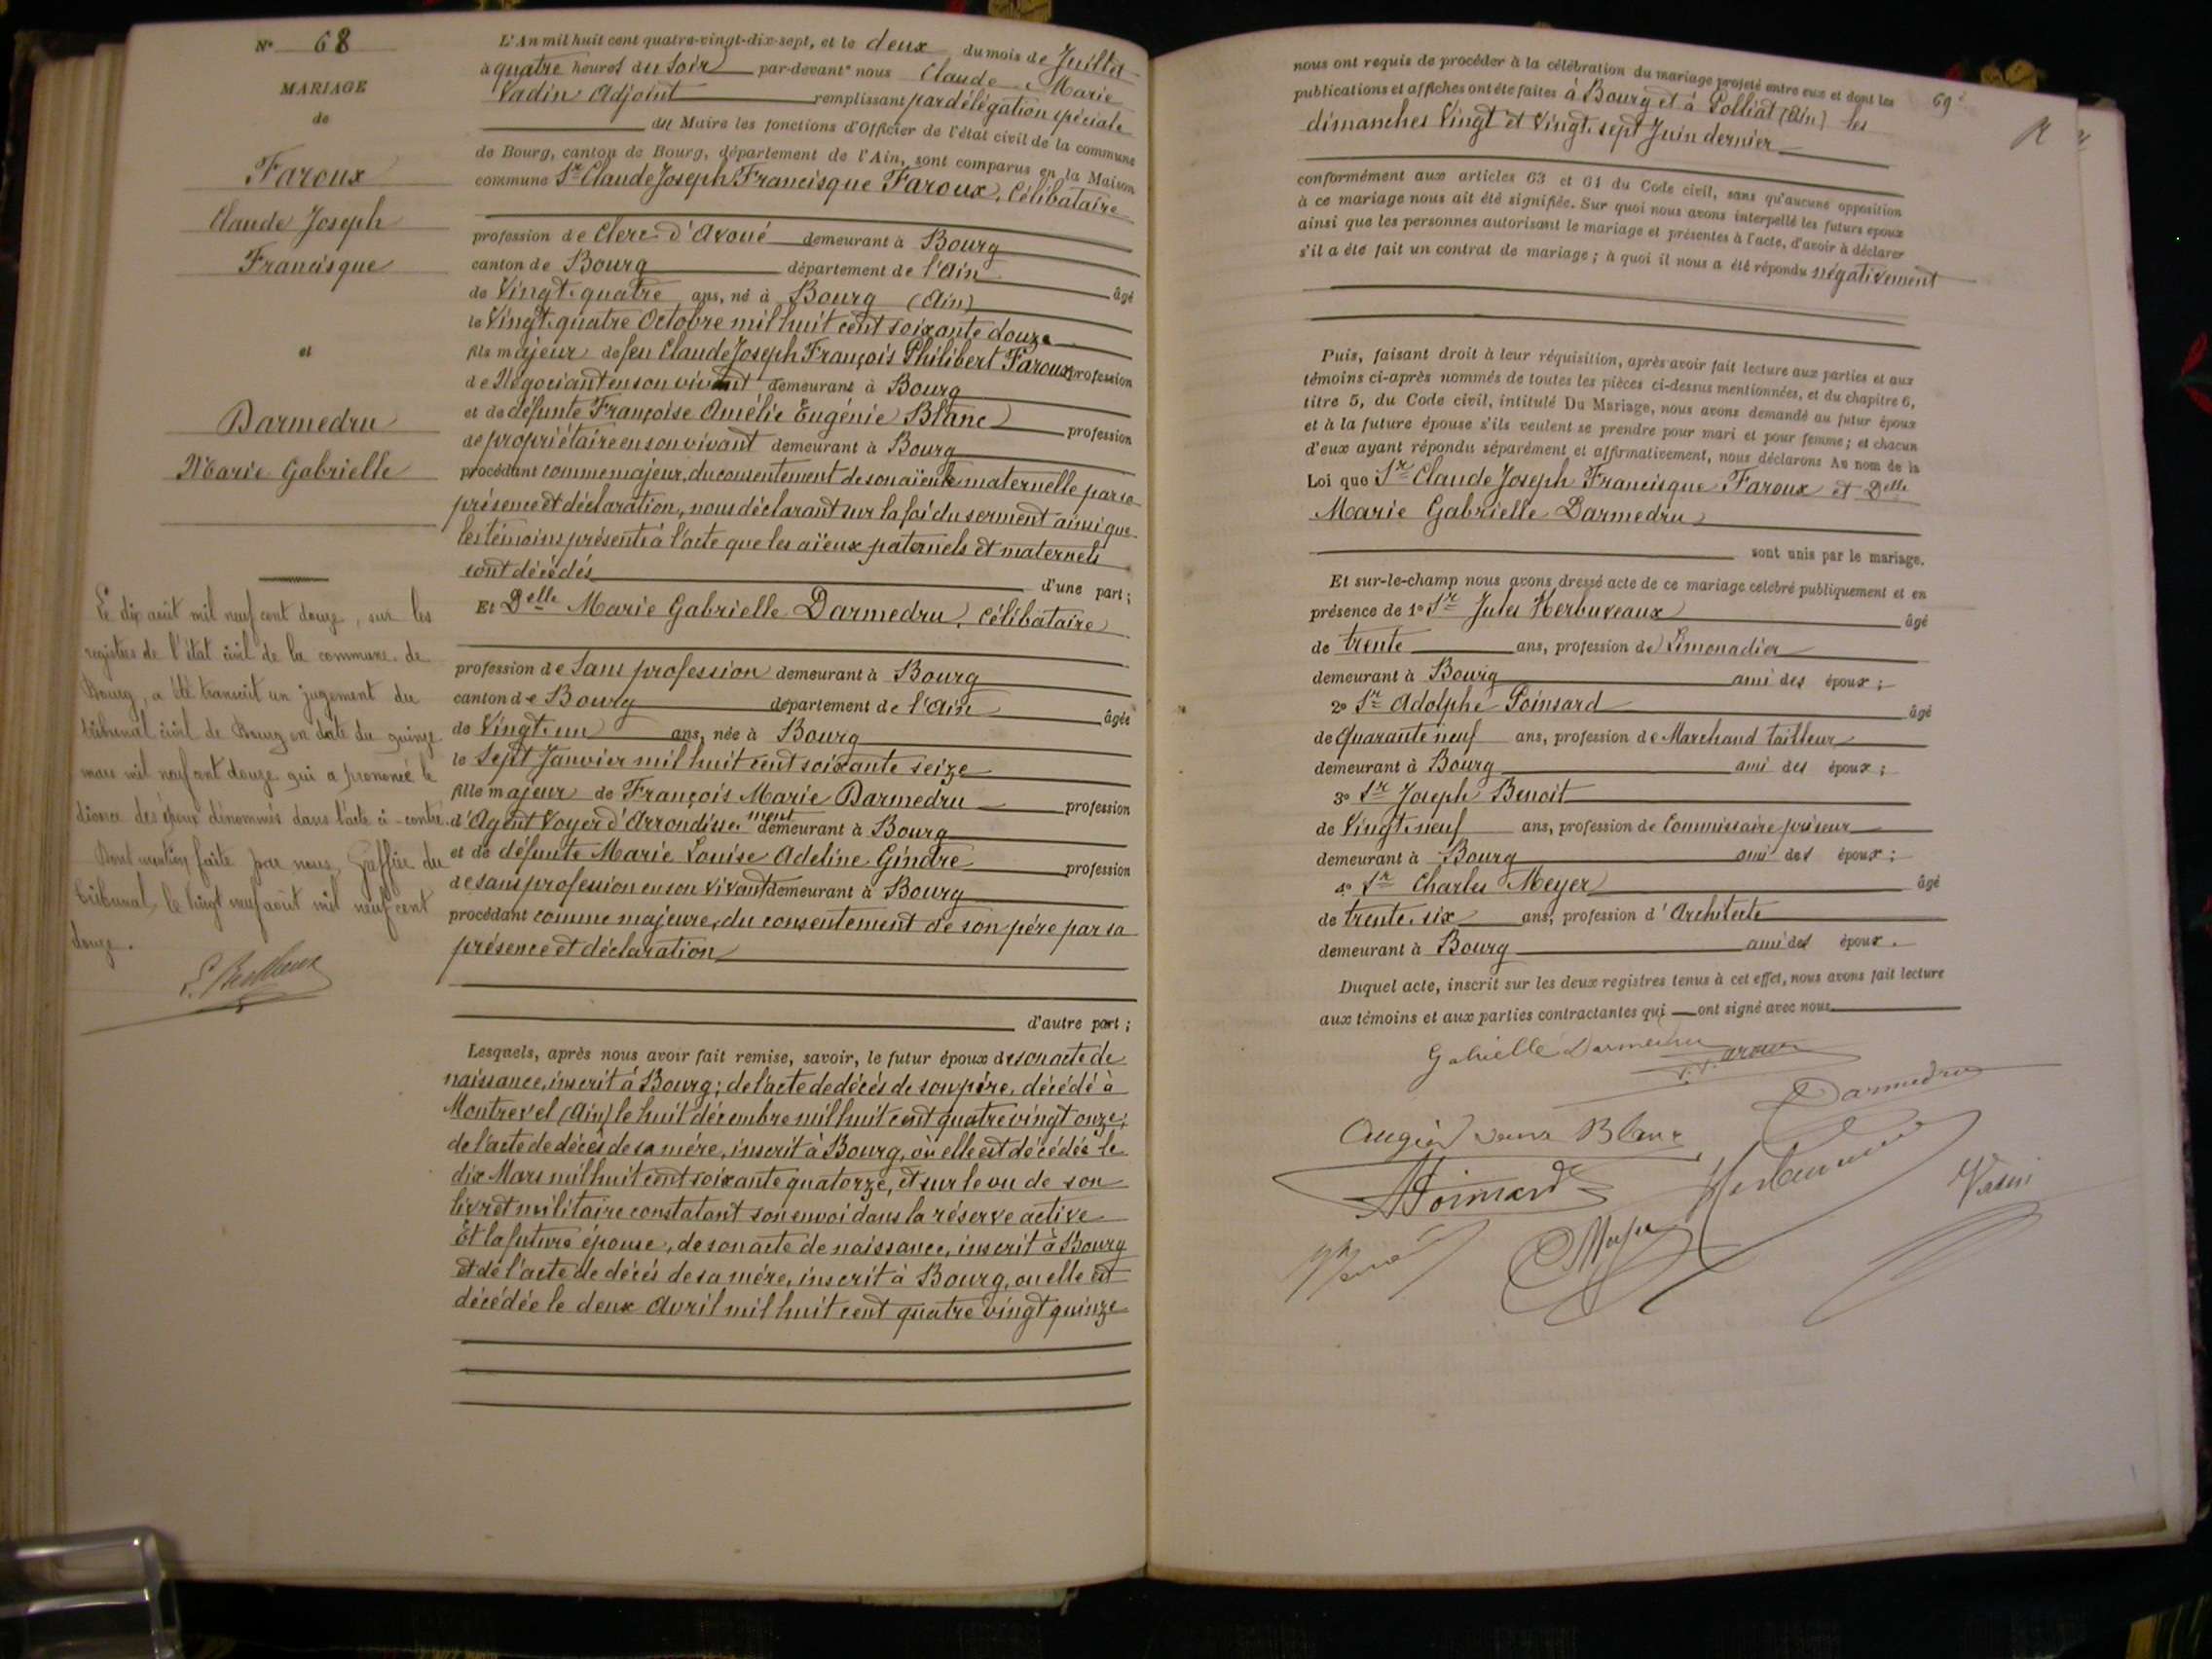 N° 68
MARIAGE
de
Faroux
Claude Joseph
Francisque
et
Darmedru
Marie Gabrielle
Le dix août mil neuf cent douze, sur les
registres de l'état civil de la commune de
Bourg, a été transcrit un jugement du
tribunal civil de Bourg en date du quinze
mars mil neuf cent douze qui a prononcé le
divorce des époux dénommés dans l'acte ci-contre.
Dont mention faite par nous, Greffier du
tribunal, le vingt neuf août mil neuf cent
douze.
L'An mil huit cent quatre-vingt-dix-sept, et le deux du mois de Juillet
à quatre heures du Soir par-devant nous Claude Marie
Vadin Adjoint remplissant par délégation spéciale
du Maire les fonctions d'Officier de l'état civil de la commune
de Bourg, canton de Bourg, département de l'Ain, sont comparus en la Maison
commune Sr Claude Joseph Francisque Faroux, Célibataire
profession de Clerc d'Avoué demeurant à Bourg
canton de Bourg département de l'Ain âgé
de Vingt-quatre ans, né à Bourg (Ain)
le Vingt-quatre Octobre mil huit cent soixante douze
fils majeur de feu Claude Joseph François Philibert Faroux profession
de Négociant en son vivant demeurant à Bourg
et de défunte Françoise Amélie Eugénie Blanc profession
de propriétaire en son vivant demeurant à Bourg
procédant comme majeur, du consentement de son aïeule maternelle par sa
présence et déclaration, nous déclarant sur la foi du serment ainsi que
les témoins présents à l'acte que les aïeux paternels et maternels
sont décédés d'une part;
Et Delle Marie Gabrielle Darmedru, Célibataire
profession de Sans profession demeurant à Bourg
canton de Bourg département de l'Ain âgée
de Vingt-un ans, née à Bourg
le Sept Janvier mil huit cent soixante seize
fille majeur de François Marie Darmedru profession
d'Agent Voyer d'Arrondissement demeurant à Bourg
et de défunte Marie Louise Adeline Gindre profession
de sans profession en son vivant demeurant à Bourg
procédant comme majeure, du consentement de son père par sa
présence et déclaration
d'autre part;
Lesquels, après nous avoir fait remise, savoir, le futur époux de son acte de
naissance, inscrit à Bourg; de l'acte de décès de son père, décédé à
Montrevel (Ain) le huit décembre mil huit cent quatre vingt onze;
de l'acte de décès de sa mère, inscrit à Bourg, où elle est décédée le
dix Mars mil huit cent soixante quatorze, et sur le vu de son
livret militaire constatant son envoi dans la réserve active
Et la future épouse, de son acte de naissance, inscrit à Bourg
et de l'acte de décès de sa mère, inscrit à Bourg, ou elle est
décédée le deux Avril mil huit cent quatre vingt quinze
69
nous ont requis de procéder à la célébration du mariage projeté entre eux et dont les
publications et affiches ont été faites à Bourg et à Polliat (Ain) les
dimanches Vingt et Vingt-sept Juin dernier
conformément aux articles 63 et 64 du Code civil, sans qu'aucune opposition
à ce mariage nous ait été signifiée. Sur quoi nous avons interpellé les futurs époux
ainsi que les personnes autorisant le mariage et présentes à l'acte, d'avoir à déclarer
s'il a été fait un contrat de mariage; à quoi il nous a été répondu négativement
Puis, faisant droit à leur réquisition, après avoir fait lecture aux parties et aux
témoins ci-après nommés de toutes les pièces ci-dessus mentionnées, et du chapitre 6,
titre 5, du Code civil, intitulé Du Mariage, nous avons demandé au futur époux
et à la future épouse s'ils veulent se prendre pour mari et pour femme; et chacun
d'eux ayant répondu séparément et affirmativement, nous déclarons Au nom de la
Loi que Sr Claude Joseph Francisque Faroux et Delle
Marie Gabrielle Darmedru
sont unis par le mariage.
Et sur-le-champ nous avons dressé acte de ce mariage célébré publiquement et en
présence de 1° Sr Jules Herbuveaux âgé
de trente ans, profession de Limonadier
demeurant à Bourg ami des époux;
2° Sr Adolphe Poinsard âgé
de Quarante neuf ans, profession de Marchand tailleur
demeurant à Bourg ami des époux;
3° Sr Joseph Benoit
de Vingt-neuf ans, profession de Commissaire priseur
demeurant à Bourg ami des époux;
4° Sr Charles Meyer âgé
de trente-six ans, profession d'Architecte
demeurant à Bourg ami des époux.
Duquel acte, inscrit sur les deux registres tenus à cet effet, nous avons fait lecture
aux témoins et aux parties contractantes qui ont signé avec nous
Gabrielle Darmedru
Faroux
Darmedru
Veuve Blanc
APoinsard
Herbuveaux
Vadin
CMeyer